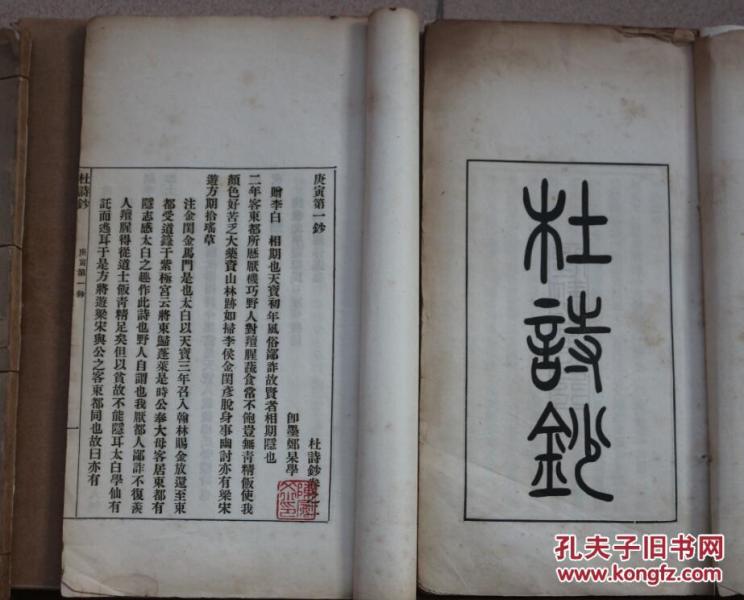 杜詩鈔
庚寅第一鈔
杜詩鈔卷之
即墨鄭杲學
贈李白　相期也天寶初年風俗鄙詐故賢者相期隱也
二年客東都所歷厭機巧野人對羶腥蔬食常不飽豈無青精飯使我
顏色好苦乏大藥資山林跡如掃李侯金閨彥脫身事幽討亦有梁宋
遊方期拾瑤草
注金閨金馬門是也太白以天寶三年召入翰林賜金放還至東
都受道籙于紫極宮云將東歸蓬萊是時公奉大母客居東都有
隱志感太白之趣作此詩也野人自謂也我厭都人鄙詐不復羨
人羶腥得從道士飯青精足矣但以貧故不能隱耳太白學仙有
託而逃耳于是方將遊梁宋與公之客東都同也故曰亦有
杜詩鈔
庚寅第一鈔
孔夫子旧书网
www.kongfz.com